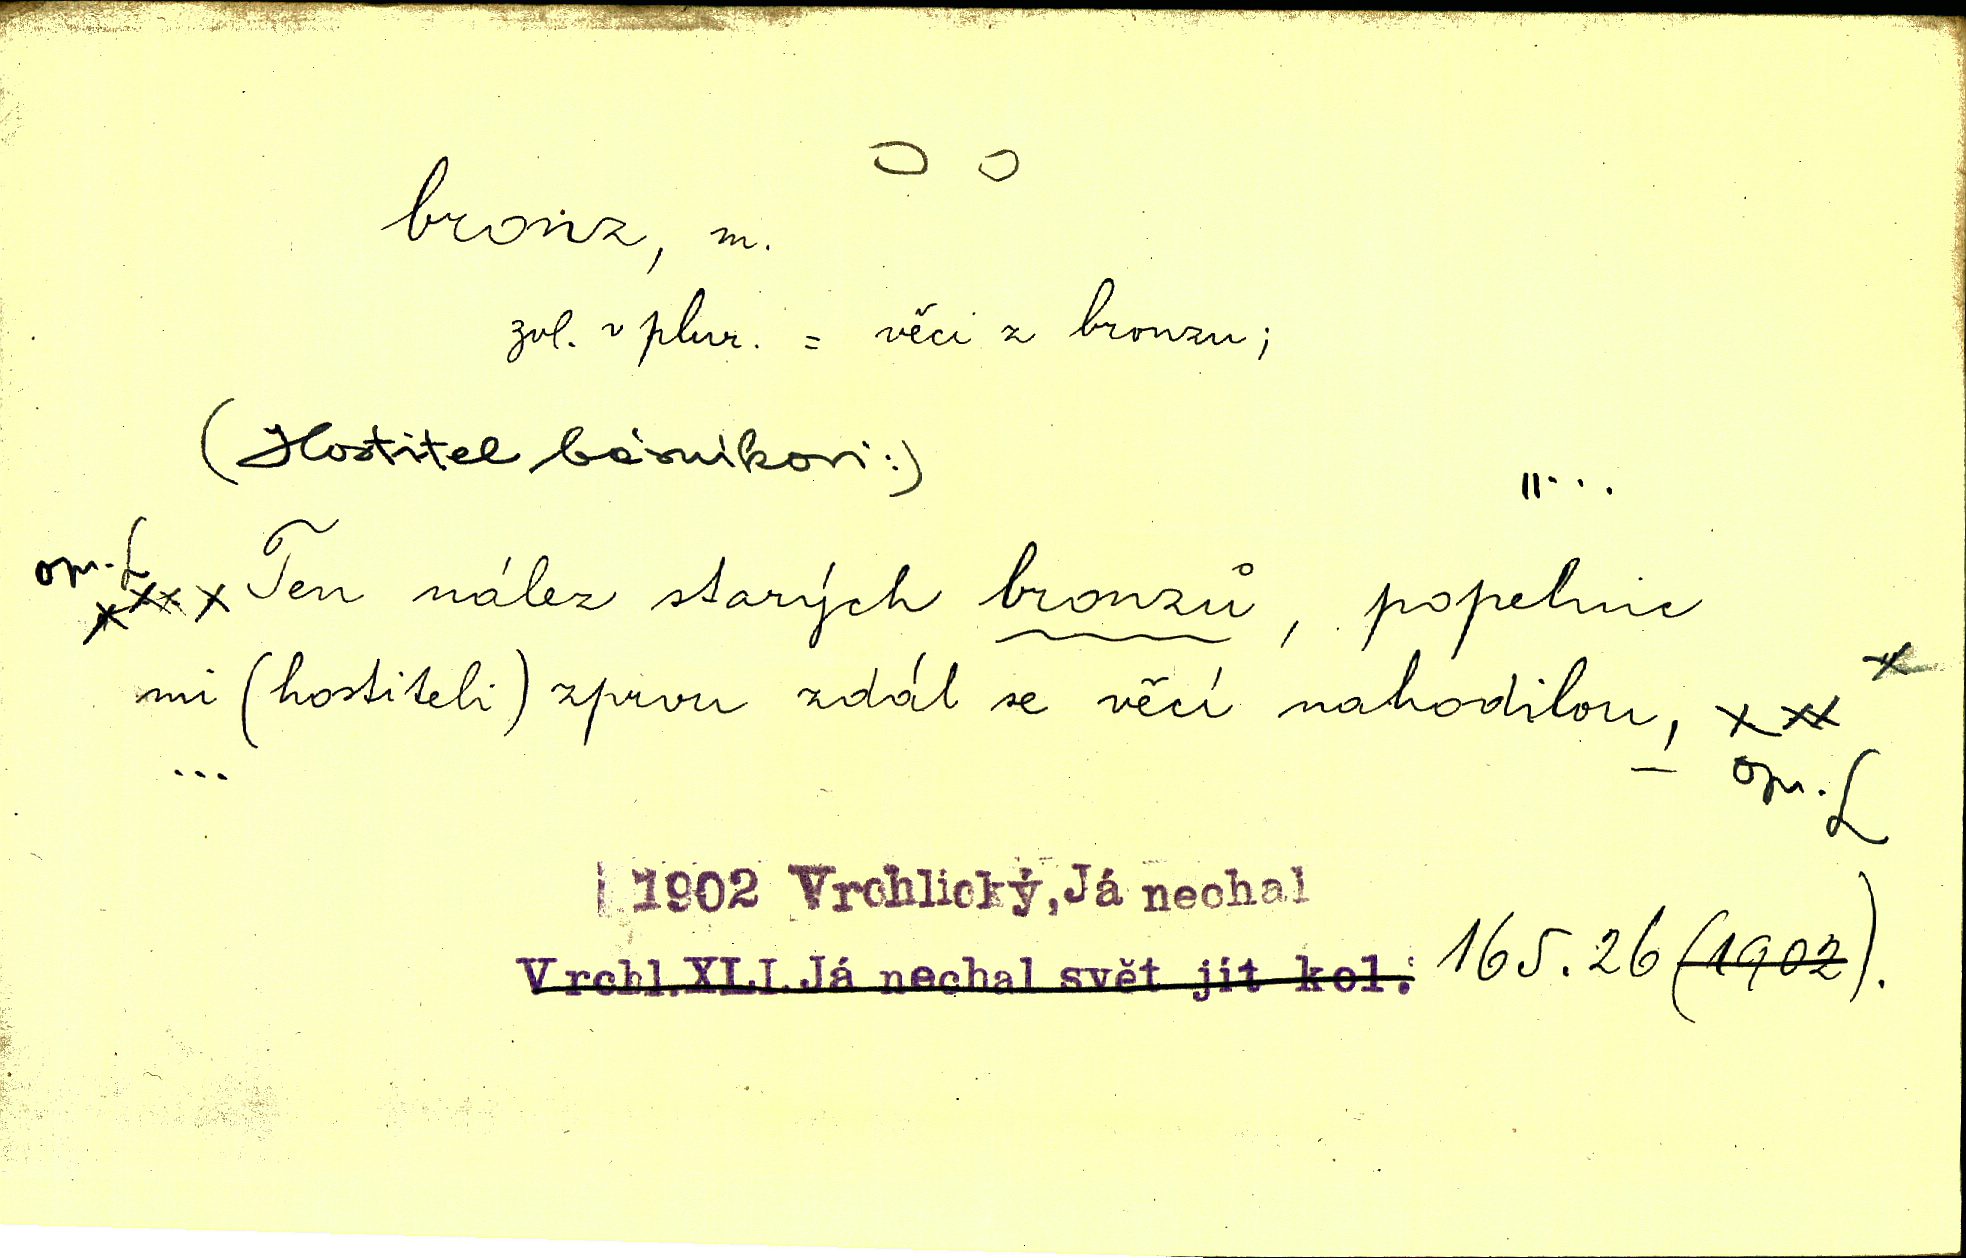 bronz, m.
zvl. v plur. = věci z bronzu;
(Hostitel básníkovi:)
"...
opr. L
xxx x Ten nález starých bronzů, popelnic
mi (hostiteli) zprvu zdál se věcí nahodilou, x xx x
...
opr. L
1902 Vrchlický, Já nechal
Vrchl. XLI. Já nechal svět jít kol: 165.26 (1902).